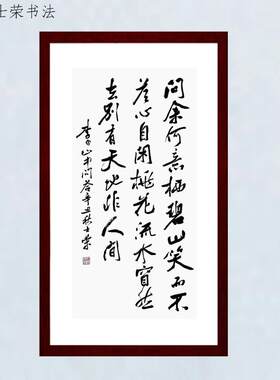 士荣书法
问余何意栖碧山笑而不
荅心自闲桃花流水窅然
去别有天地非人间
李白山中问答辛丑秋士荣